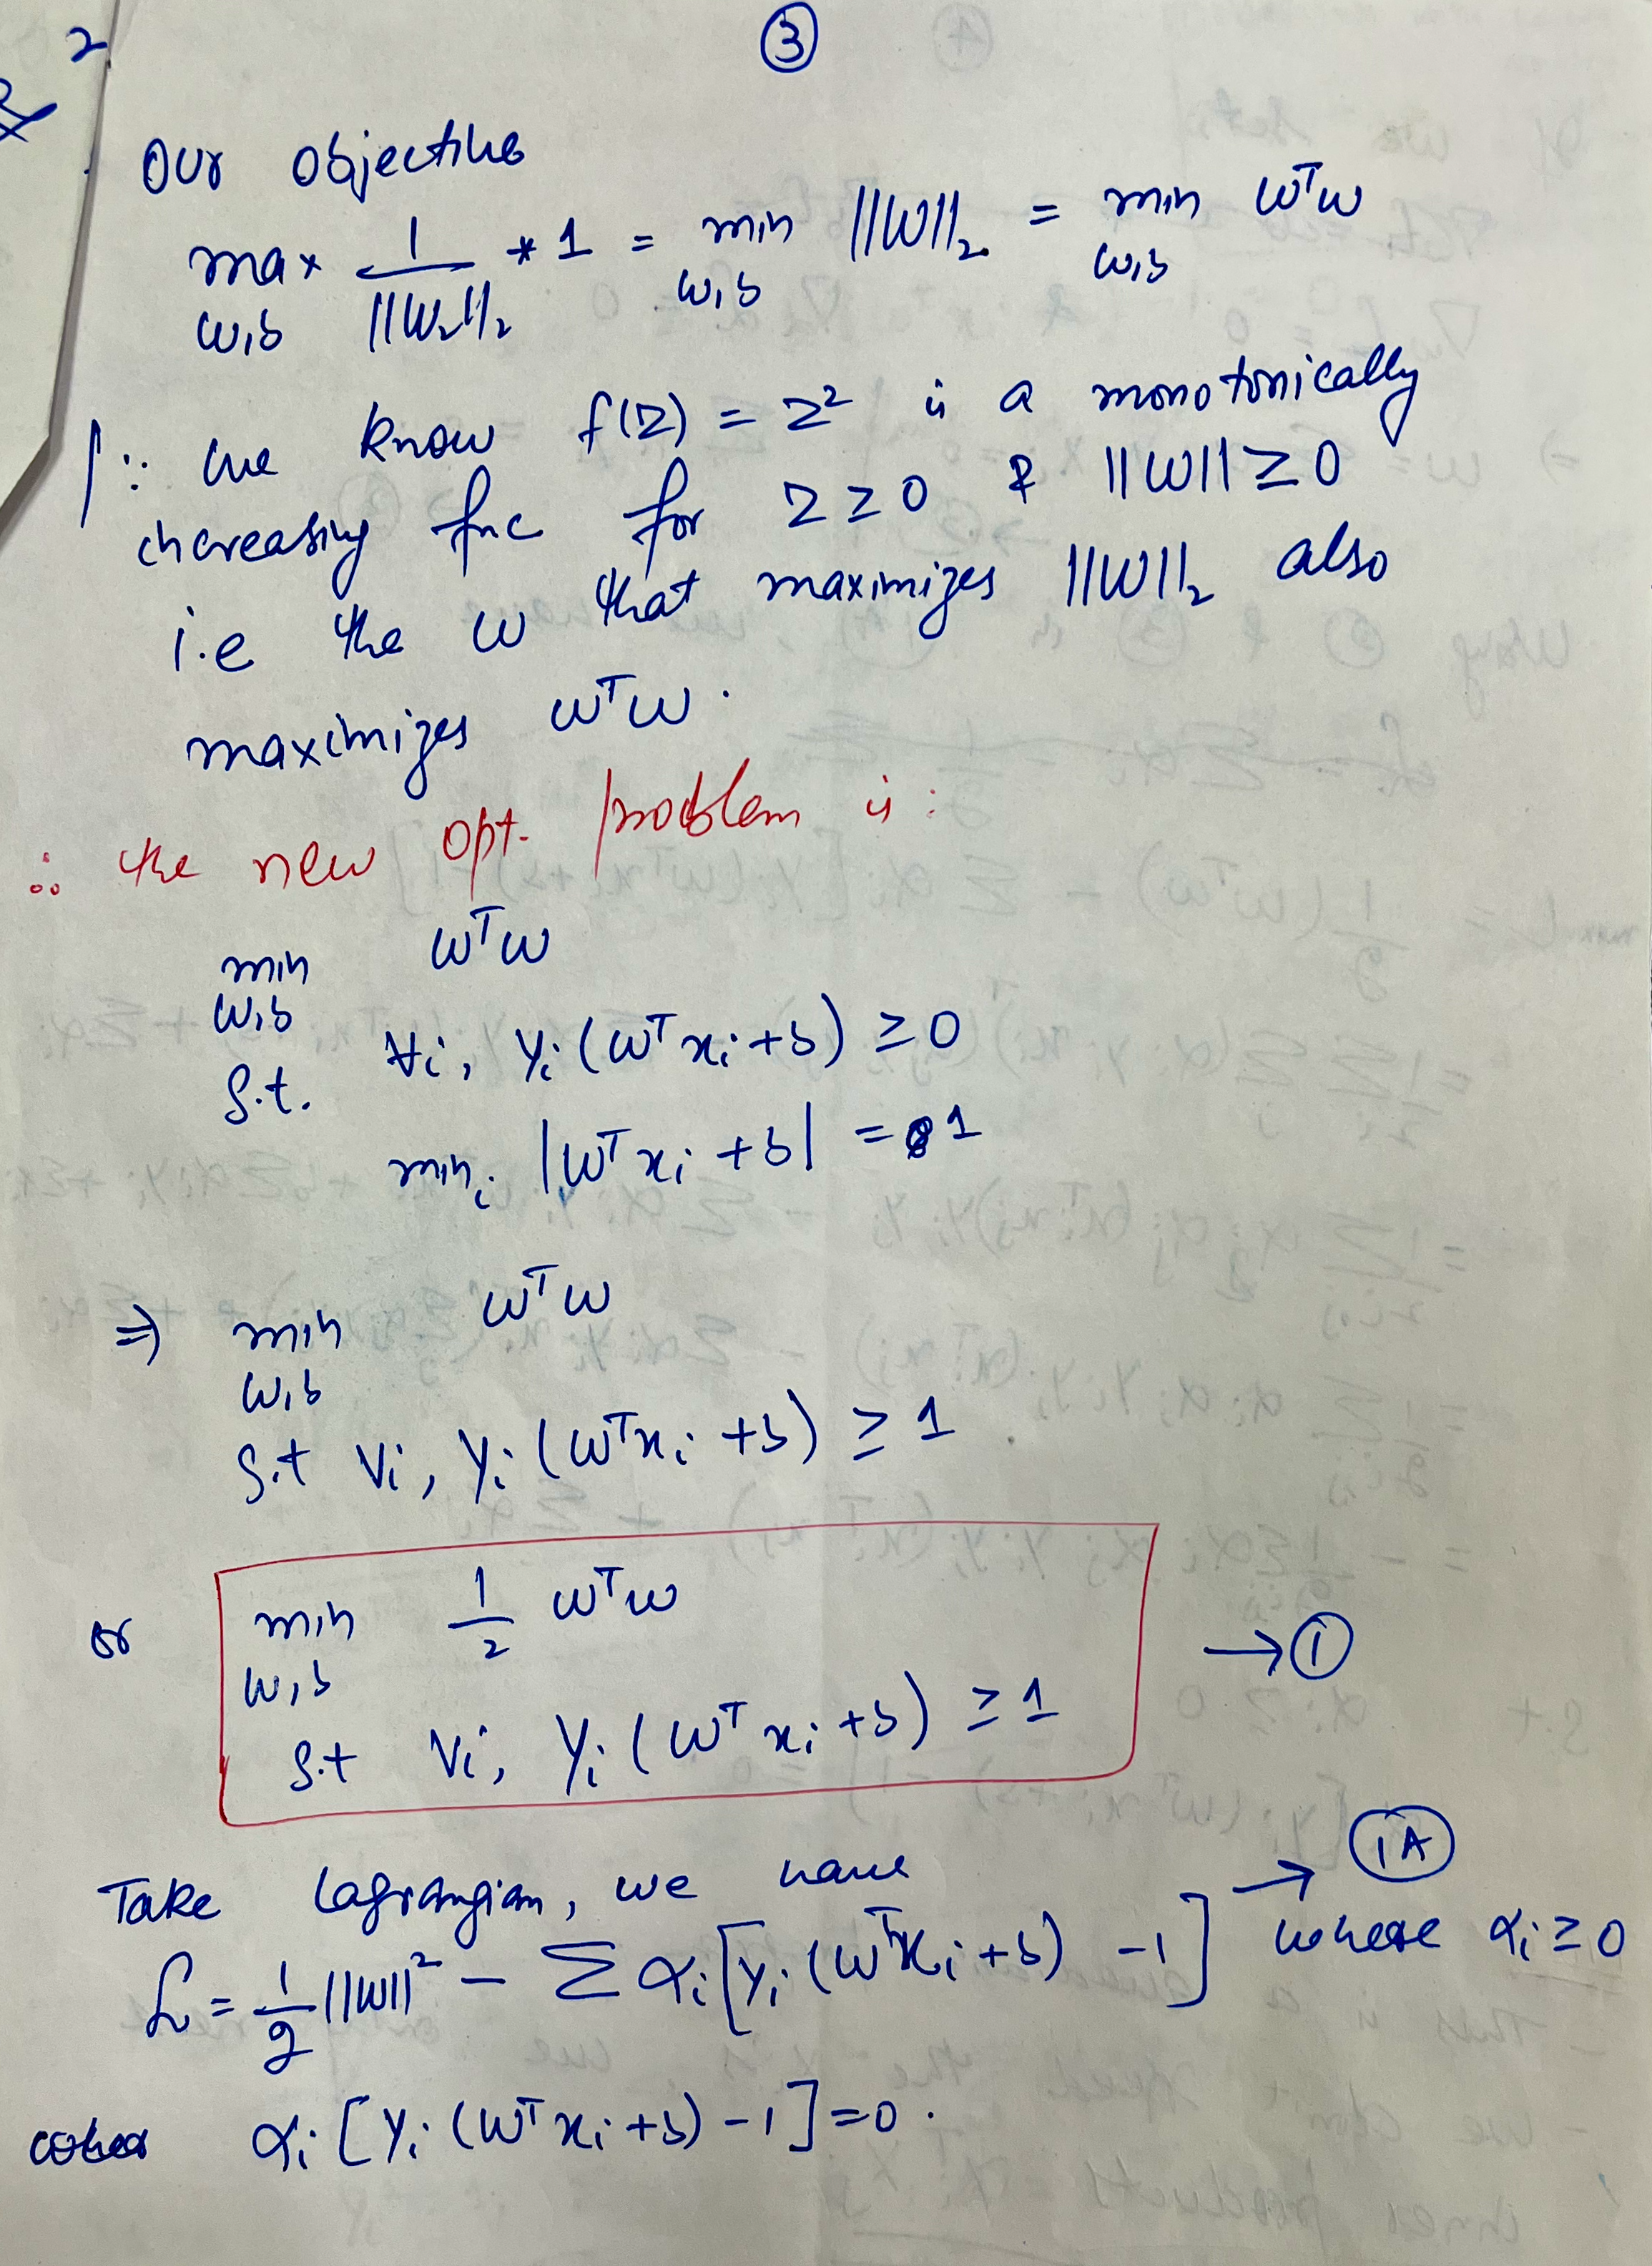 2
③
Our objective
max 1/||W₂||₂ * 1 = min ||W||₂ = min wᵀw
w,b w,b w,b
∵ we know f(z) = z² is a monotonically
increasing fnc for z ≥ 0 & ||W|| ≥ 0
i.e the w that maximizes ||W||₂ also
maximizes wᵀw.
∴ the new opt. problem is:
min wᵀw
w,b
s.t. ∀i, yᵢ(wᵀxᵢ+b) ≥ 0
minᵢ |wᵀxᵢ+b| = 1
⇒ min wᵀw
w,b
s.t ∀i, yᵢ(wᵀxᵢ+b) ≥ 1.
or min 1/2 wᵀw → ①
w,b
s.t ∀i, yᵢ(wᵀxᵢ+b) ≥ 1
Take Lagrangian, we have → 1A
ℒ = 1/2 ||w||² - Σ αᵢ[yᵢ(wᵀxᵢ+b) -1] where αᵢ ≥ 0
αᵢ[yᵢ(wᵀxᵢ+b)-1]=0.